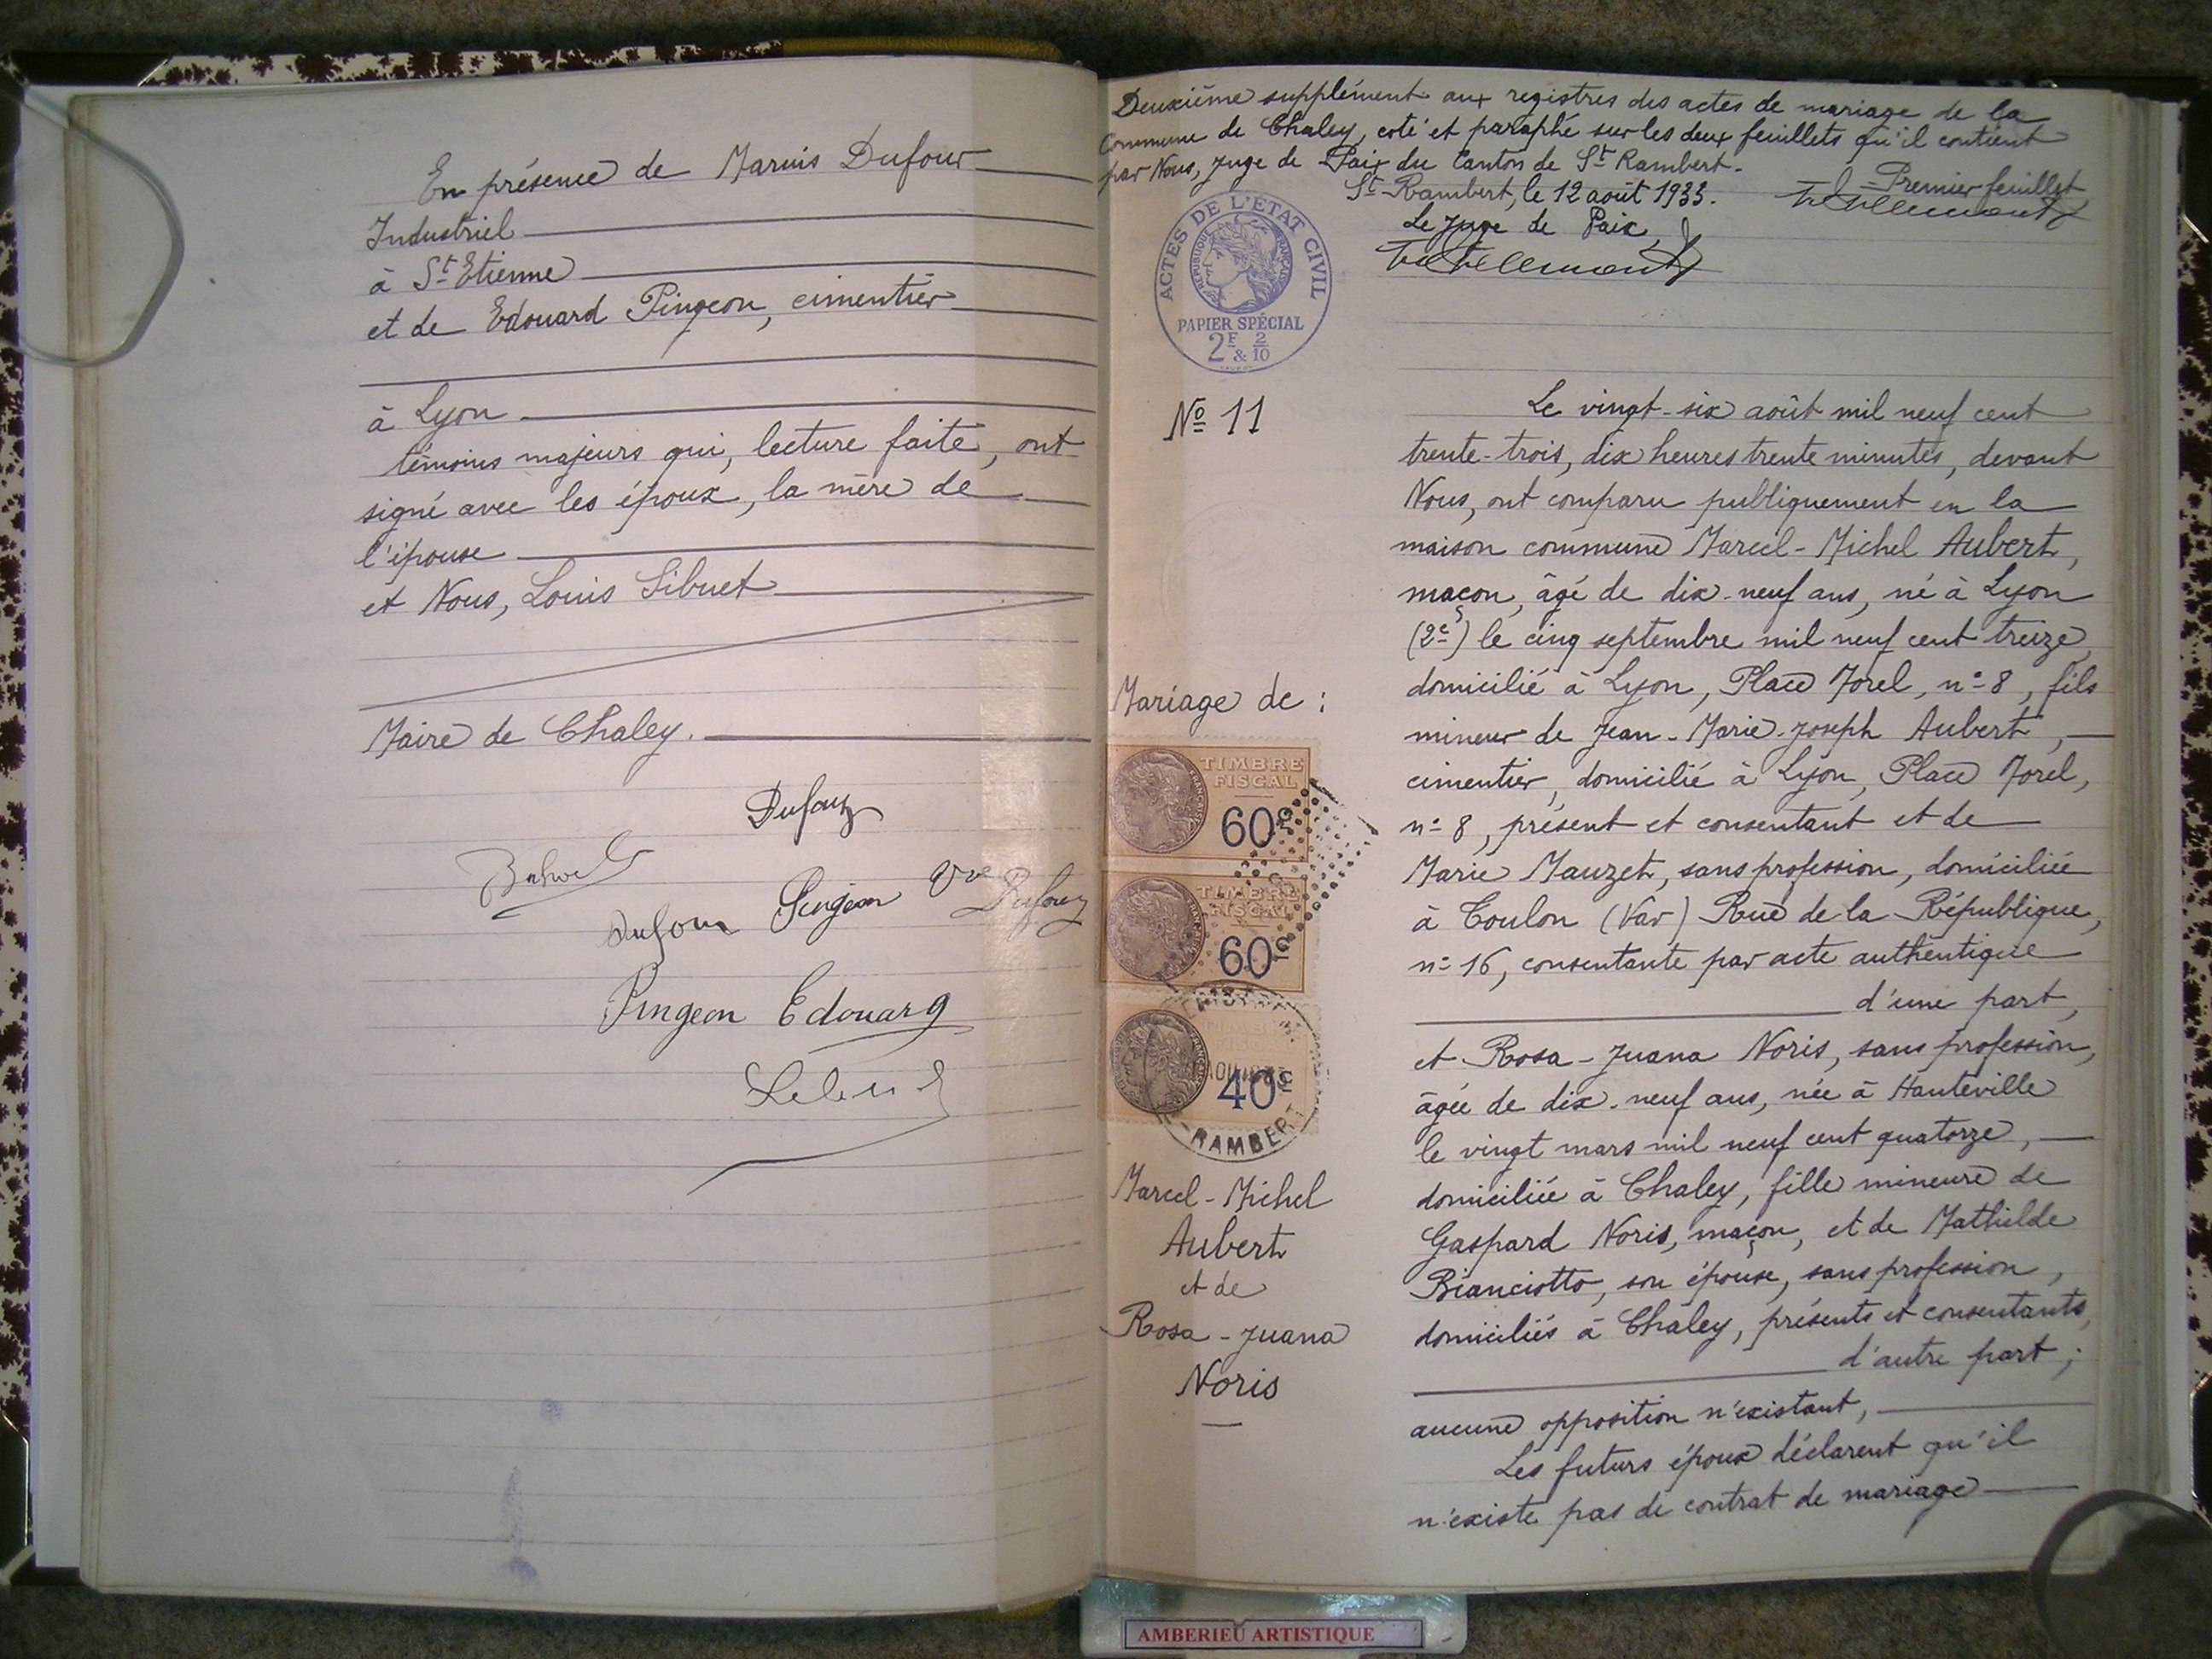 En présence de Marius Dufour
Industriel
à St Etienne
et de Edouard Pingeon, cimentier
à Lyon
témoins majeurs qui, lecture faite, ont
signé avec les époux, la mère de
l'épouse
et Nous, Louis Sibuet
Maire de Chaley.
Dufour
Dufour Pingeon Vve Dufour
Pingeon Edouard
Deuxième supplément aux registres des actes de mariage de la
Commune de Chaley, coté et paraphé sur les deux feuillets qu'il contient
par Nous, Juge de Paix du Canton de St Rambert.
St-Rambert, le 12 août 1933.
Premier feuillet
Le Juge de Paix,
ACTES DE L'ETAT CIVIL
REPUBLIQUE FRANÇAISE
PAPIER SPÉCIAL
2F & 2/10
No 11
Mariage de :
TIMBRE
FISCAL
60c
TIMBRE
FISCAL
60c
TIMBRE
FISCAL
40c
RAMBERT
Marcel-Michel
Aubert
et de
Rosa-Juana
Noris
Le vingt-six août mil neuf cent
trente-trois, dix heures trente minutes, devant
Nous, ont comparu publiquement en la
maison commune Marcel-Michel Aubert,
maçon, âgé de dix-neuf ans, né à Lyon
(2e) le cinq septembre mil neuf cent treize,
domicilié à Lyon, Place Morel, n° 8, fils
mineur de Jean-Marie-Joseph Aubert,
cimentier, domicilié à Lyon, Place Morel,
n° 8, présent et consentant et de
Marie Mauzet, sans profession, domiciliée
à Toulon (Var) Rue de la République,
n° 16, consentante par acte authentique
d'une part,
et Rosa-Juana Noris, sans profession,
âgée de dix-neuf ans, née à Hauteville
le vingt mars mil neuf cent quatorze,
domiciliée à Chaley, fille mineure de
Gaspard Noris, maçon, et de Mathilde
Bianciotto, son épouse, sans profession,
domiciliés à Chaley, présents et consentants,
d'autre part ;
aucune opposition n'existant,
Les futurs époux déclarent qu'il
n'existe pas de contrat de mariage
AMBERIEU ARTISTIQUE